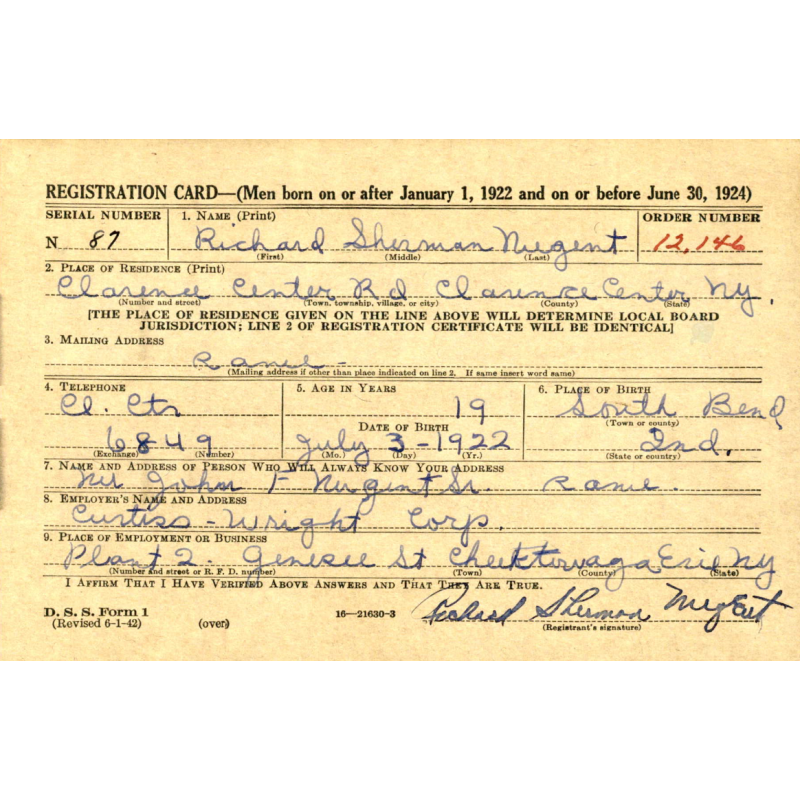 REGISTRATION CARD—(Men born on or after January 1, 1922 and on or before June 30, 1924)
SERIAL NUMBER 1. NAME (Print) ORDER NUMBER
N 87 Richard Sherman Nugent 12,146
(First) (Middle) (Last)
2. PLACE OF RESIDENCE (Print)
Clarence Center Rd Clarence Center Ny.
(Number and street) (Town, township, village, or city) (County) (State)
[THE PLACE OF RESIDENCE GIVEN ON THE LINE ABOVE WILL DETERMINE LOCAL BOARD
JURISDICTION; LINE 2 OF REGISTRATION CERTIFICATE WILL BE IDENTICAL]
3. MAILING ADDRESS
Same -
(Mailing address if other than place indicated on line 2. If same insert word same)
4. TELEPHONE 5. AGE IN YEARS 6. PLACE OF BIRTH
Cl. Ctr 19 South Bend
(Town or county)
DATE OF BIRTH
6849 July 3-1922 Ind.
(Exchange) (Number) (Mo.) (Day) (Yr.) (State or country)
7. NAME AND ADDRESS OF PERSON WHO WILL ALWAYS KNOW YOUR ADDRESS
Mr John F Nugent Sr. Same.
8. EMPLOYER'S NAME AND ADDRESS
Curtiss-Wright Corp.
9. PLACE OF EMPLOYMENT OR BUSINESS
Plant 2. Genesee St Cheektowaga Erie Ny
(Number and street or R. F. D. number) (Town) (County) (State)
I AFFIRM THAT I HAVE VERIFIED ABOVE ANSWERS AND THAT THEY ARE TRUE.
D. S. S. Form 1
(Revised 6-1-42) (over) 16—21630-3 Richard Sherman Nugent
(Registrant's signature)